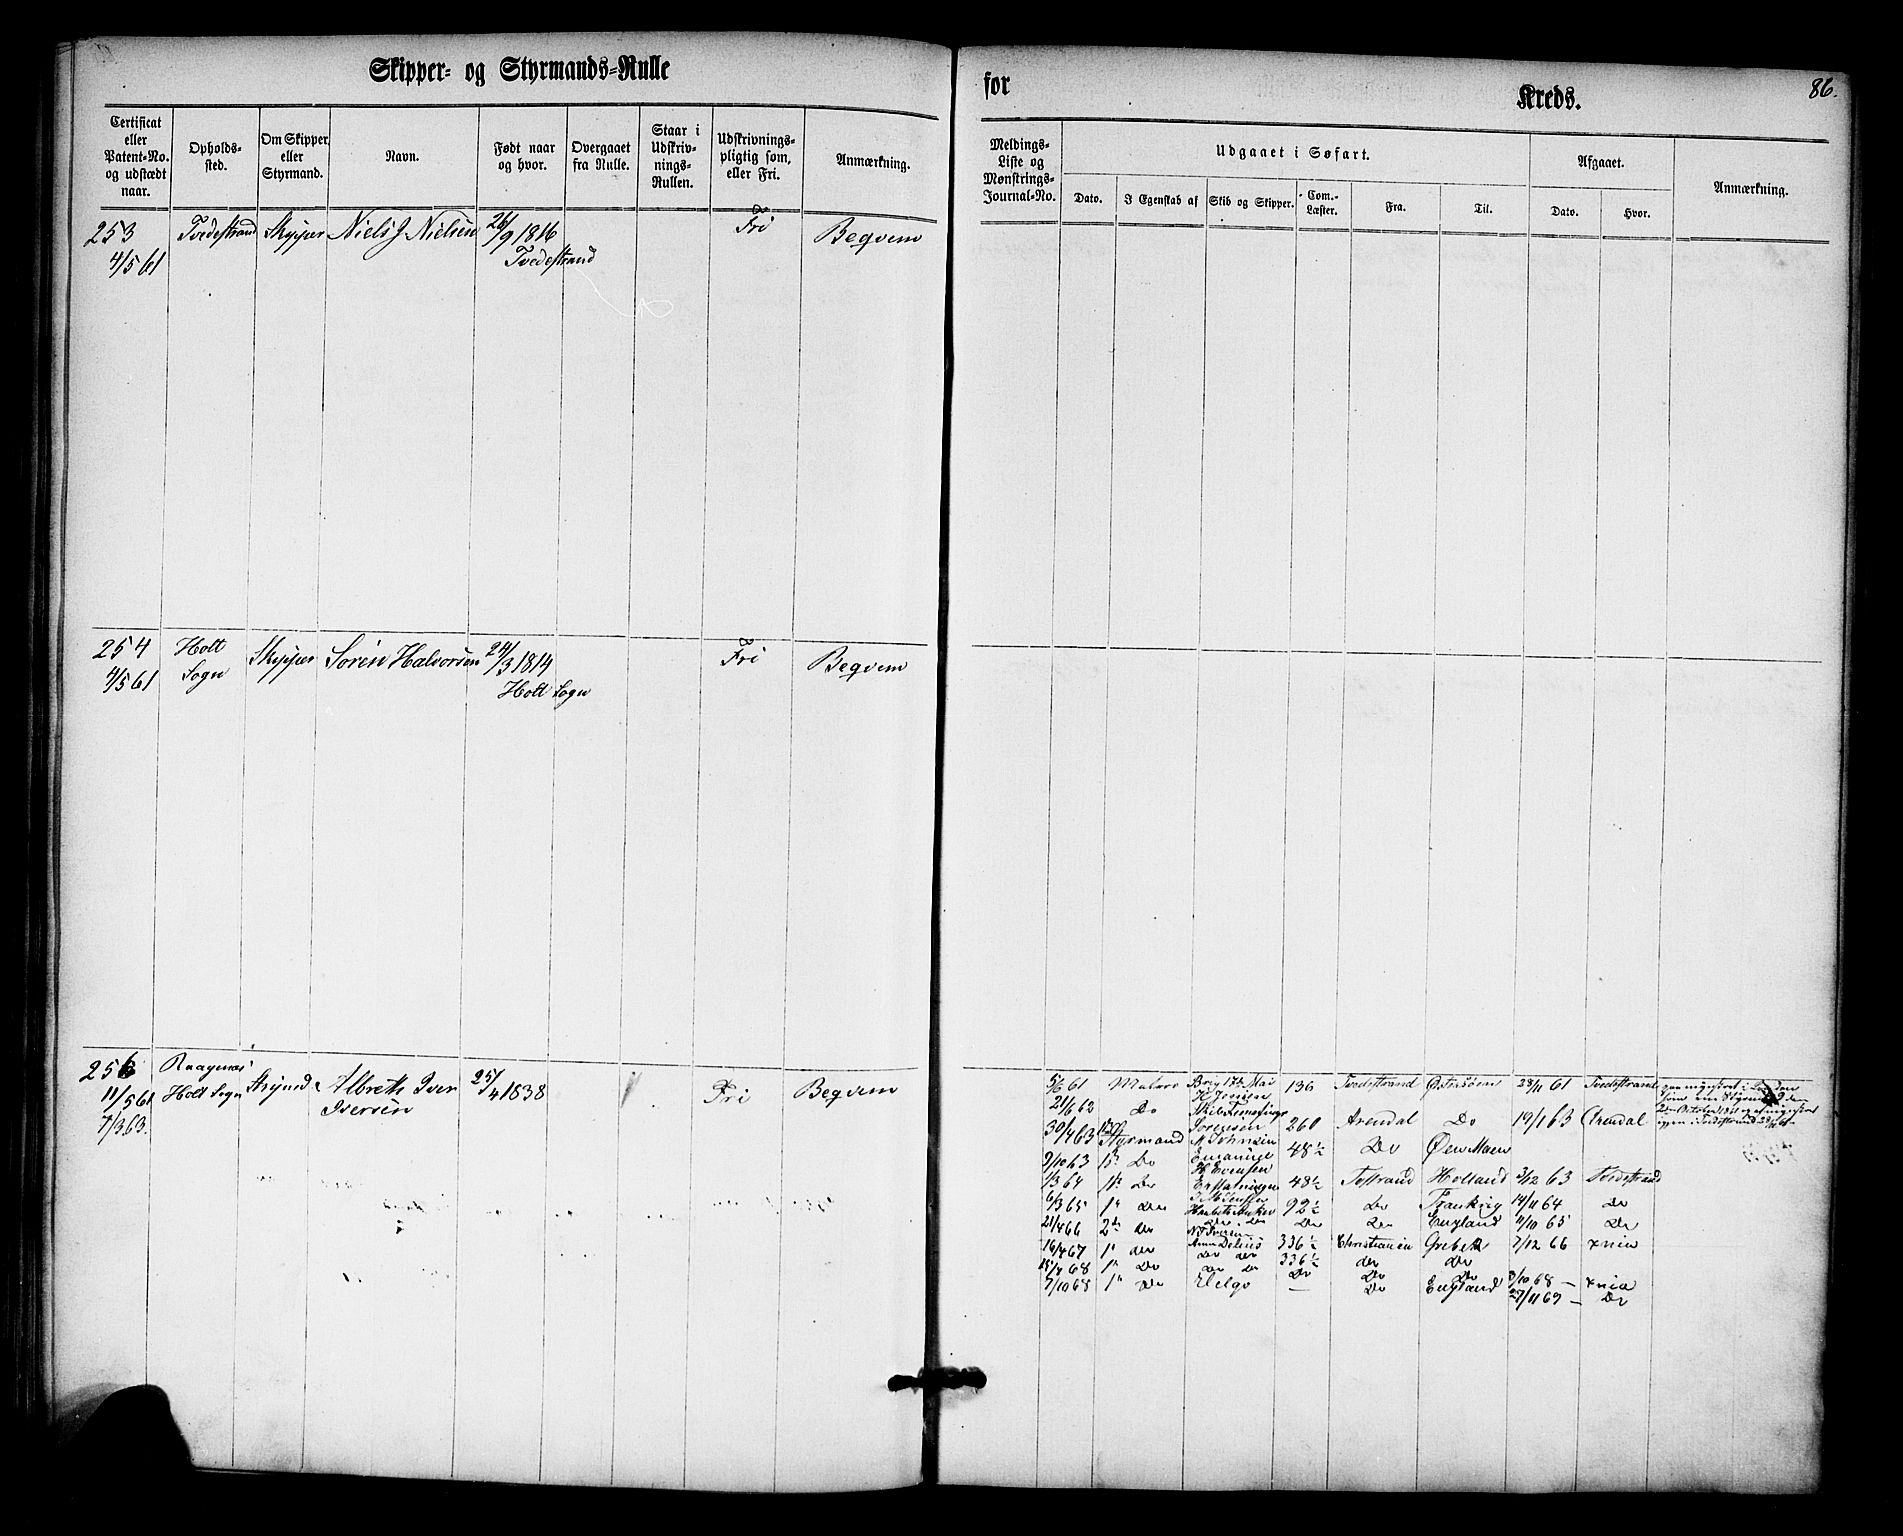 Skipper- og Styrmands-Rulle
for
Kreds.
86.
Certificat eller Patent-No. og udstædt naar.
Opholds-sted.
Om Skipper eller Styrmand.
Navn.
Født naar og hvor.
Overgaaet fra Rulle.
Staar i Udskriv-nings-Rullen.
Udskrivnings-pligtig som, eller Fri.
Anmærkning.
Meldings-Liste og Mønstrings-Journal-No.
Udgaaet i Søfart.
Dato.
I Egenskab af
Skib og Skipper.
Com.-Læster.
Fra.
Til.
Afgaaet.
Dato.
Hvor.
Anmærkning.
253 Tvedestrand Skipper Niels J Nielsen 26/9 1816 Fri Beqvem
4/5 61 Tvedestrand
254 Holt Skipper Søren Halvorsen 24/3 1814 Fri Beqvem
4/5 61 Sogn Holt Sogn
256 Raagenæs
11/5 61 Holt Sogn Albreth Iver 25/4 1838 Fri Beqvem
7/3 63. Iversen
5/6 61 Matros Brig 17de Mai 136 Tvedestrand Østersøen 28/11 61 Tvedestrand
H Jensen
21/6 62 Do 260 Arendal Do 19/1 63 Arendal
Sørensen
30/4 63 Styrmand 48½ Do
9/10 63 Do
H Evensen
1/3 64 Do 48½ Testrand Holland 3/12 63 Tvedestrand
6/3 65 1ste Do 92½ Do Frankrig 14/11 64 Do
21/4 66 2den Do Do Do Do Do England 11/10 65 Do
16/4 67 1ste Do 336½ Christiania Qvebek 7/12 66 xnia
15/4 68 1ste Do Do Do 336½ Do Do
7/10 68 1ste Do Helgo — Do England 3/10 68 — xnia
27/11 69 — Do